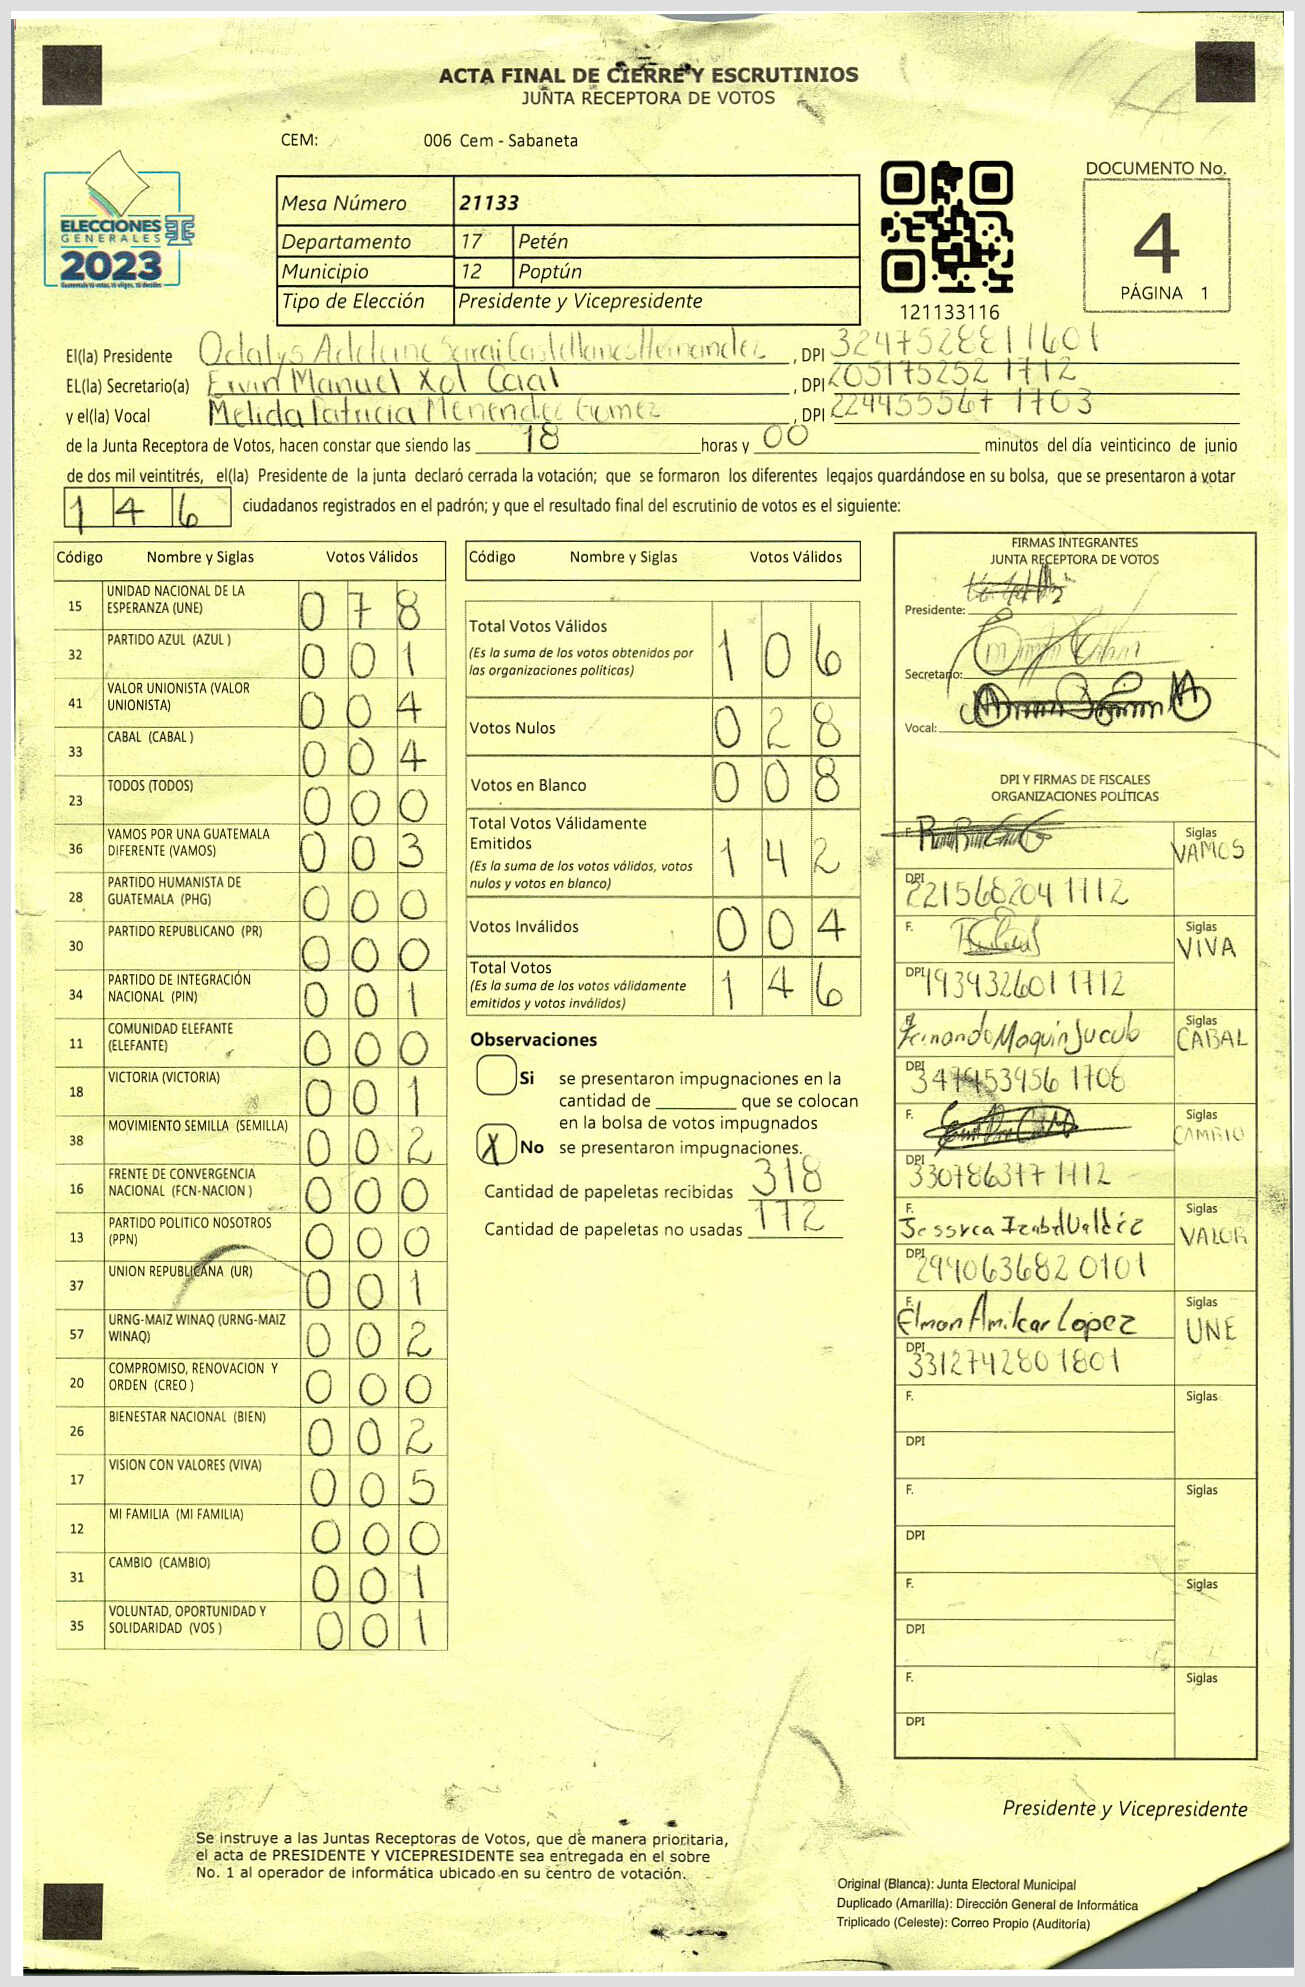 ACTA FINAL DE CIERRE Y ESCRUTINIOS
JUNTA RECEPTORA DE VOTOS
CEM: 006 Cem - Sabaneta
ELECCIONES
GENERALES
2023
Mesa Número 21133
Departamento 17 Petén
Municipio 12 Poptún
Tipo de Elección Presidente y Vicepresidente
121133116
DOCUMENTO No.
4
PÁGINA 1
El(la) Presidente Odalys Adelaine Sarai Castellanos Hernandez, DPI 3247528811601
EL(la) Secretario(a) Eivin Manuel Xol Caal, DPI 205175252 1712
y el(la) Vocal Melida Patricia Menendez Gomez, DPI 224455567 1703
de la Junta Receptora de Votos, hacen constar que siendo las 18 horas y 00 minutos del día veinticinco de junio
de dos mil veintitrés, el(la) Presidente de la junta declaró cerrada la votación; que se formaron los diferentes legajos guardándose en su bolsa, que se presentaron a votar
146 ciudadanos registrados en el padrón; y que el resultado final del escrutinio de votos es el siguiente:
Código Nombre y Siglas Votos Válidos
15 UNIDAD NACIONAL DE LA ESPERANZA (UNE) 078
32 PARTIDO AZUL (AZUL ) 001
41 VALOR UNIONISTA (VALOR UNIONISTA) 004
33 CABAL (CABAL ) 004
23 TODOS (TODOS) 000
36 VAMOS POR UNA GUATEMALA DIFERENTE (VAMOS) 003
28 PARTIDO HUMANISTA DE GUATEMALA (PHG) 000
30 PARTIDO REPUBLICANO (PR) 000
34 PARTIDO DE INTEGRACIÓN NACIONAL (PIN) 001
11 COMUNIDAD ELEFANTE (ELEFANTE) 000
18 VICTORIA (VICTORIA) 001
38 MOVIMIENTO SEMILLA (SEMILLA) 002
16 FRENTE DE CONVERGENCIA NACIONAL (FCN-NACION ) 000
13 PARTIDO POLITICO NOSOTROS (PPN) 000
37 UNION REPUBLICANA (UR) 001
57 URNG-MAIZ WINAQ (URNG-MAIZ WINAQ) 002
20 COMPROMISO, RENOVACION Y ORDEN (CREO ) 000
26 BIENESTAR NACIONAL (BIEN) 002
17 VISION CON VALORES (VIVA) 005
12 MI FAMILIA (MI FAMILIA) 000
31 CAMBIO (CAMBIO) 001
35 VOLUNTAD, OPORTUNIDAD Y SOLIDARIDAD (VOS ) 001
Código Nombre y Siglas Votos Válidos
Total Votos Válidos 106
(Es la suma de los votos obtenidos por
las organizaciones politicas)
Votos Nulos 028
Votos en Blanco 008
Total Votos Válidamente
Emitidos 142
(Es la suma de los votos válidos, votos
nulos y votos en blanco)
Votos Inválidos 004
Total Votos 146
(Es la suma de los votos válidamente
emitidos y votos inválidos)
Observaciones
Si se presentaron impugnaciones en la
cantidad de ________ que se colocan
en la bolsa de votos impugnados
X No se presentaron impugnaciones.
Cantidad de papeletas recibidas 318
Cantidad de papeletas no usadas 172
FIRMAS INTEGRANTES
JUNTA RECEPTORA DE VOTOS
Presidente:
Secretario:
Vocal:
DPI Y FIRMAS DE FISCALES
ORGANIZACIONES POLÍTICAS
F. Siglas VAMOS
DPI 221568204 1712
F. Siglas VIVA
DPI 193932601 1712
F. Fernando Maquin Jucub Siglas CABAL
DPI 347953956 1708
F. Siglas CAMBIO
DPI 330786377 1712
F. Jessyca Izabel Valdéz Siglas VALOR
DPI 299063682 0101
F. Elman Amilcar Lopez Siglas UNE
DPI 3312742801801
F. Siglas
DPI
F. Siglas
DPI
F. Siglas
DPI
F. Siglas
DPI
Presidente y Vicepresidente
Se instruye a las Juntas Receptoras de Votos, que de manera prioritaria,
el acta de PRESIDENTE Y VICEPRESIDENTE sea entregada en el sobre
No. 1 al operador de informática ubicado en su centro de votación.
Original (Blanca): Junta Electoral Municipal
Duplicado (Amarilla): Dirección General de Informática
Triplicado (Celeste): Correo Propio (Auditoría)